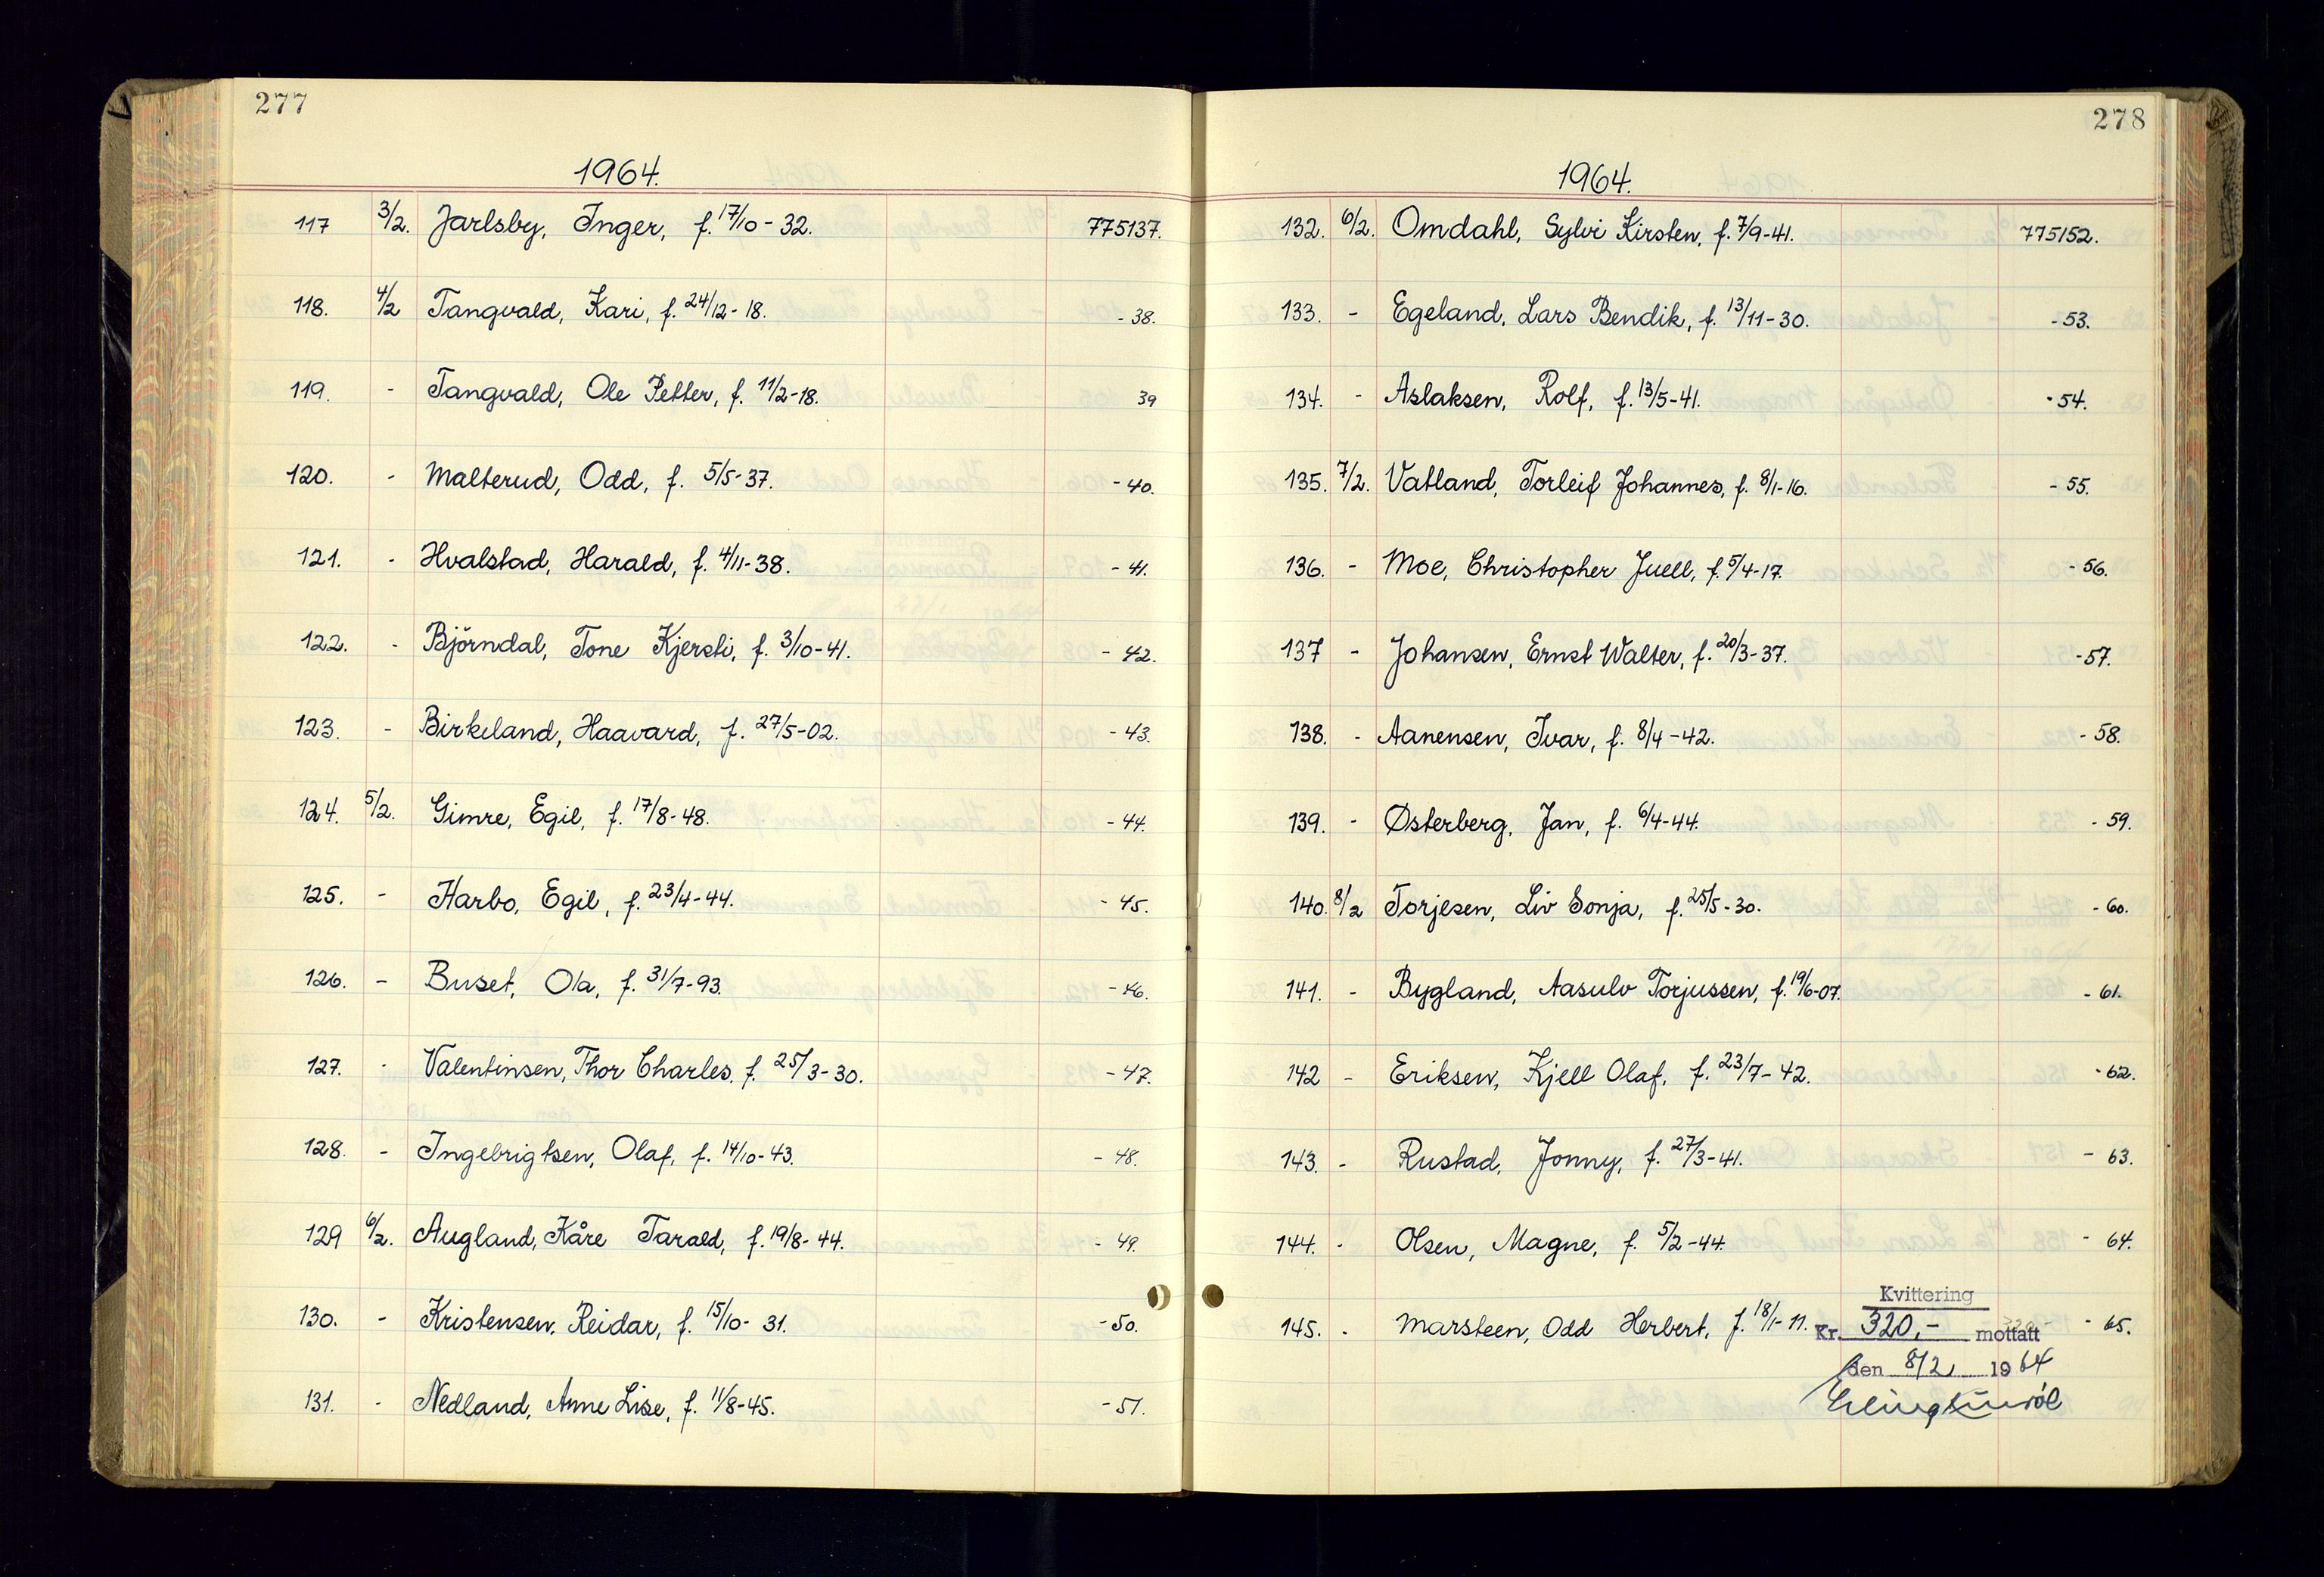 277
1964.
117 3/2. Jarlsby, Inger, f. 17/10-32. 775137.
118. 4/2 Tangvald, Kari, f. 24/12-18. -38.
119. - Tangvald, Ole Petter, f. 11/2-18. 39
120. - Malterud, Odd, f. 5/5-37. -40.
121. - Hvalstad, Harald, f. 4/11-38. -41.
122. - Björndal, Tone Kjersti, f. 3/10-41. -42.
123. - Birkeland, Haavard, f. 27/5-02. -43.
124. 5/2. Gimre, Egil, f. 17/8-48. -44.
125. - Harbo, Egil, f. 23/4-44. -45.
126. - Buset, Ola, f. 31/7-93. -46.
127. - Valentinsen, Thor Charles, f. 25/3-30. -47.
128. - Ingebrigtsen, Olaf, f. 14/10-43. -48.
129 6/2. Augland, Kåre Tarald, f. 19/8-44. -49.
130. - Kristensen, Reidar, f. 15/10-31. -50.
131. - Nedland, Anne Lise, f. 11/8-45. -51.
278
1964.
132. 6/2. Omdahl, Sylvi Kirsten, f. 7/9-41. 775152.
133. - Egeland, Lars Bendik, f. 13/11-30. -53.
134. - Aslaksen, Rolf, f. 13/5-41. -54.
135. 7/2. Vatland, Torleif Johannes, f. 8/1-16. -55.
136. - Moe, Christopher Juell, f. 5/4-17. -56.
137 - Johansen, Ernst Walter, f. 20/3-37. -57.
138. - Aanensen, Ivar, f. 8/4-42. -58.
139. - Østerberg, Jan, f. 6/4-44. -59.
140. 8/2 Torjesen, Liv Sonja, f. 25/5-30. -60.
141. - Bygland, Aasulv Torjussen, f. 19/6-07. -61.
142 - Eriksen, Kjell Olaf, f. 23/7-42. -62.
143. - Rustad, Jonny, f. 27/3-41. -63.
144. - Olsen, Magne, f. 5/2-44. -64.
145. - Marsteen, Odd Herbert, f. 18/1-11. -65.
Kvittering
Kr. 320,- mottatt
den 8/2 1964